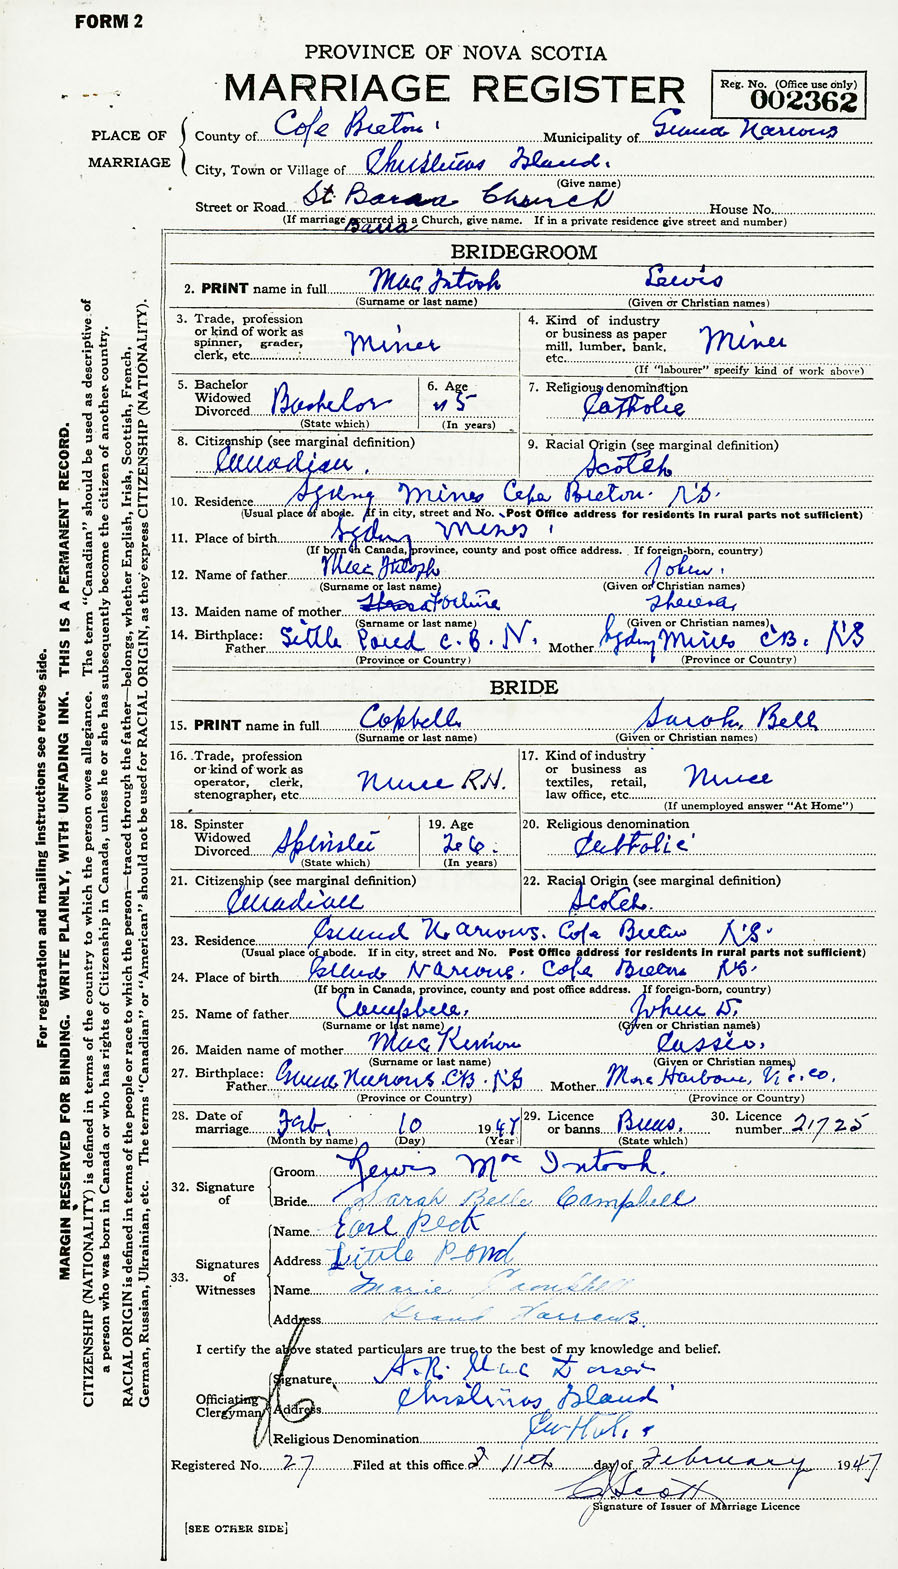 FORM 2
PROVINCE OF NOVA SCOTIA
MARRIAGE REGISTER
Reg. No. (Office use only)
002362
PLACE OF MARRIAGE
County of Cape Breton Municipality of Grand Narrows
City, Town or Village of Christmas Island.
(Give name)
Street or Road St Church House No.
(If marriage occurred in a Church, give name. If in a private residence give street and number)
Barra
BRIDEGROOM
2. PRINT name in full MacIntosh Lewis
(Surname or last name) (Given or Christian names)
3. Trade, profession or kind of work as spinner, grader, clerk, etc. Miner
4. Kind of industry or business as paper mill, lumber, bank, etc. Miner
(If "labourer" specify kind of work above)
5. Bachelor Widowed Divorced Bachelor
(State which)
6. Age 5
(In years)
7. Religious denomination Catholic
8. Citizenship (see marginal definition) Canadian.
9. Racial Origin (see marginal definition) Scotch
10. Residence Sydney Mines Cape Breton. N.S.
(Usual place of abode. If in city, street and No. Post Office address for residents in rural parts not sufficient)
11. Place of birth Sydney Mines
(If born in Canada, province, county and post office address. If foreign-born, country)
12. Name of father MacIntosh John
(Surname or last name) (Given or Christian names)
13. Maiden name of mother Theresa
(Surname or last name) (Given or Christian names)
14. Birthplace: Father Little Pond C.B. N. Mother Sydney Mines CB. NS
(Province or Country) (Province or Country)
BRIDE
15. PRINT name in full Sarah Bell
(Surname or last name) (Given or Christian names)
16. Trade, profession or kind of work as operator, clerk, stenographer, etc. Nurse R.N.
17. Kind of industry or business as textiles, retail, law office, etc. Nurse
(If unemployed answer "At Home")
18. Spinster Widowed Divorced Spinster
(State which)
19. Age 26.
(In years)
20. Religious denomination Catholic
21. Citizenship (see marginal definition) Canadian
22. Racial Origin (see marginal definition) Scotch.
23. Residence Grand Narrows. Cape Breton N.S.
(Usual place of abode. If in city, street and No. Post Office address for residents in rural parts not sufficient)
24. Place of birth Grand Narrows. Cape Breton NS.
(If born in Canada, province, county and post office address. If foreign-born, country)
25. Name of father Campbell, John D.
(Surname or last name) (Given or Christian names)
26. Maiden name of mother MacKinnon Cassie.
(Surname or last name) (Given or Christian names)
27. Birthplace: Father Grand Narrows. CB. NS Mother Harbour, Vic. co.
(Province or Country) (Province or Country)
28. Date of marriage Feb. 10 1947
(Month by name) (Day) (Year)
29. Licence or banns Banns.
(State which)
30. Licence number 21725
32. Signature of
Groom Lewis Mac Intosh.
Bride Sarah Belle Campbell
33. Signatures of Witnesses
Name Earl Peck
Address Little Pond
Name Marie Campbell
Address Grand Narrows.
I certify the above stated particulars are true to the best of my knowledge and belief.
Officiating Clergyman
Signature A.R. Mac
Address Christmas Island
Religious Denomination Catholic
Registered No. 27 Filed at this office 11th day of February 1947
Scott
Signature of Issuer of Marriage Licence
[SEE OTHER SIDE]
For registration and mailing instructions see reverse side.
MARGIN RESERVED FOR BINDING. WRITE PLAINLY, WITH UNFADING INK. THIS IS A PERMANENT RECORD.
CITIZENSHIP (NATIONALITY) is defined in terms of the country to which the person owes allegiance. The term "Canadian" should be used as descriptive of
a person who was born in Canada or who has rights of Citizenship in Canada, unless he or she has subsequently become the citizen of another country.
RACIAL ORIGIN is defined in terms of the people or race to which the person—traced through the father—belongs, whether English, Irish, Scottish, French,
German, Russian, Ukrainian, etc. The terms "Canadian" or "American" should not be used for RACIAL ORIGIN, as they express CITIZENSHIP (NATIONALITY).